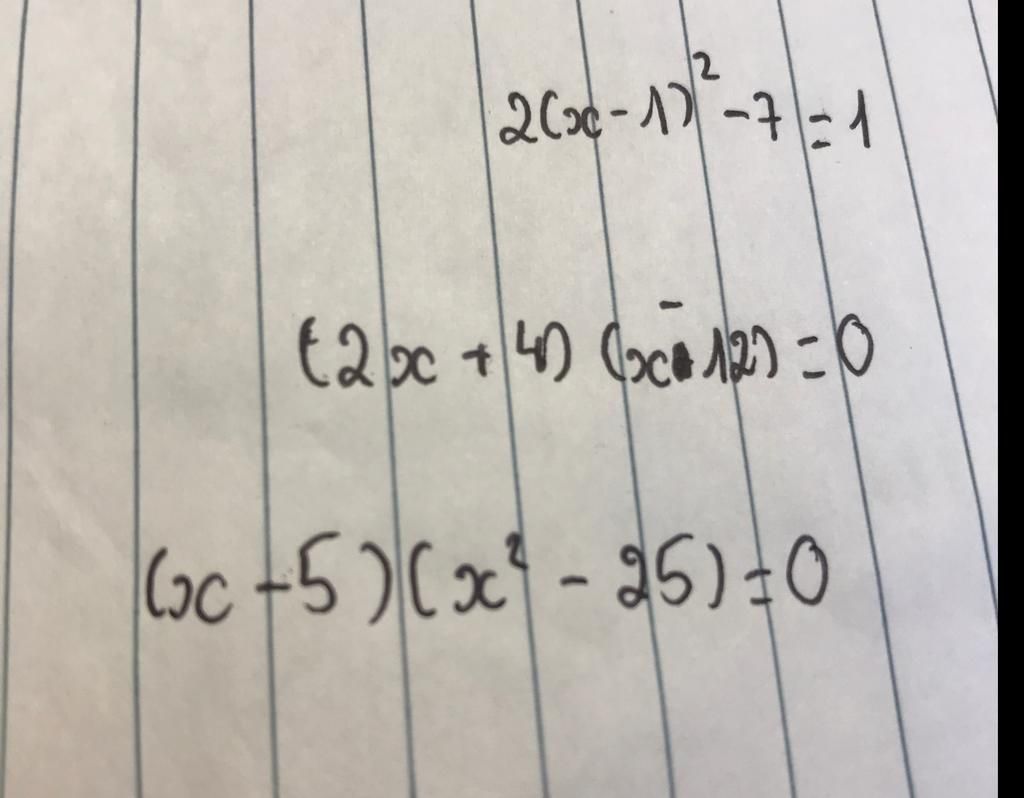 2(x-1)² -7 = 1
(2x + 4) (x - 12) = 0
(x - 5)(x² - 25) = 0